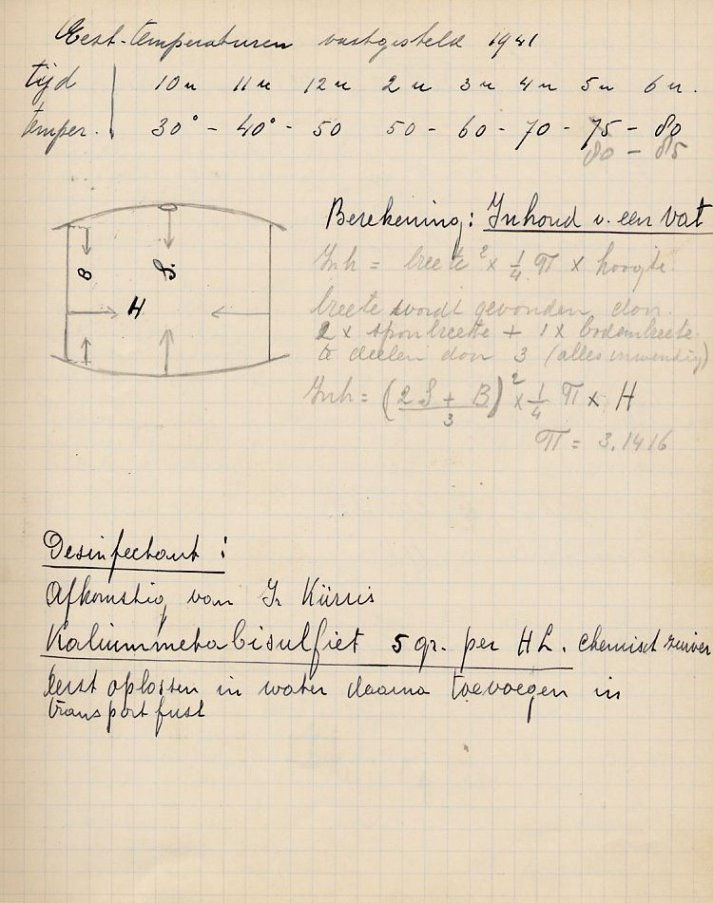 Eest-temperaturen vastgesteld 1941
tijd 10 u 11 u 12 u 2 u 3 u 4 u 5 u 6 u.
temper. 30° - 40° - 50 50 - 60 - 70 - 75 - 80
80 - 85
Berekening: Inhoud v. een vat
B S. H
Inh = breete² x ¼ π x hoogte.
breete wordt gevonden door
2 x sponbreette + 1 x bodembreete
te deelen door 3 (alles inwendig)
Inh = (2 S + B / 3)² x ¼ π x H
π = 3,1416
Desinfectant :
Afkomstig van Ir
Kaliummetabisulfiet 5 gr. per HL. chemisch zuiver
Eerst oplossen in water daarna toevoegen in
transportfust